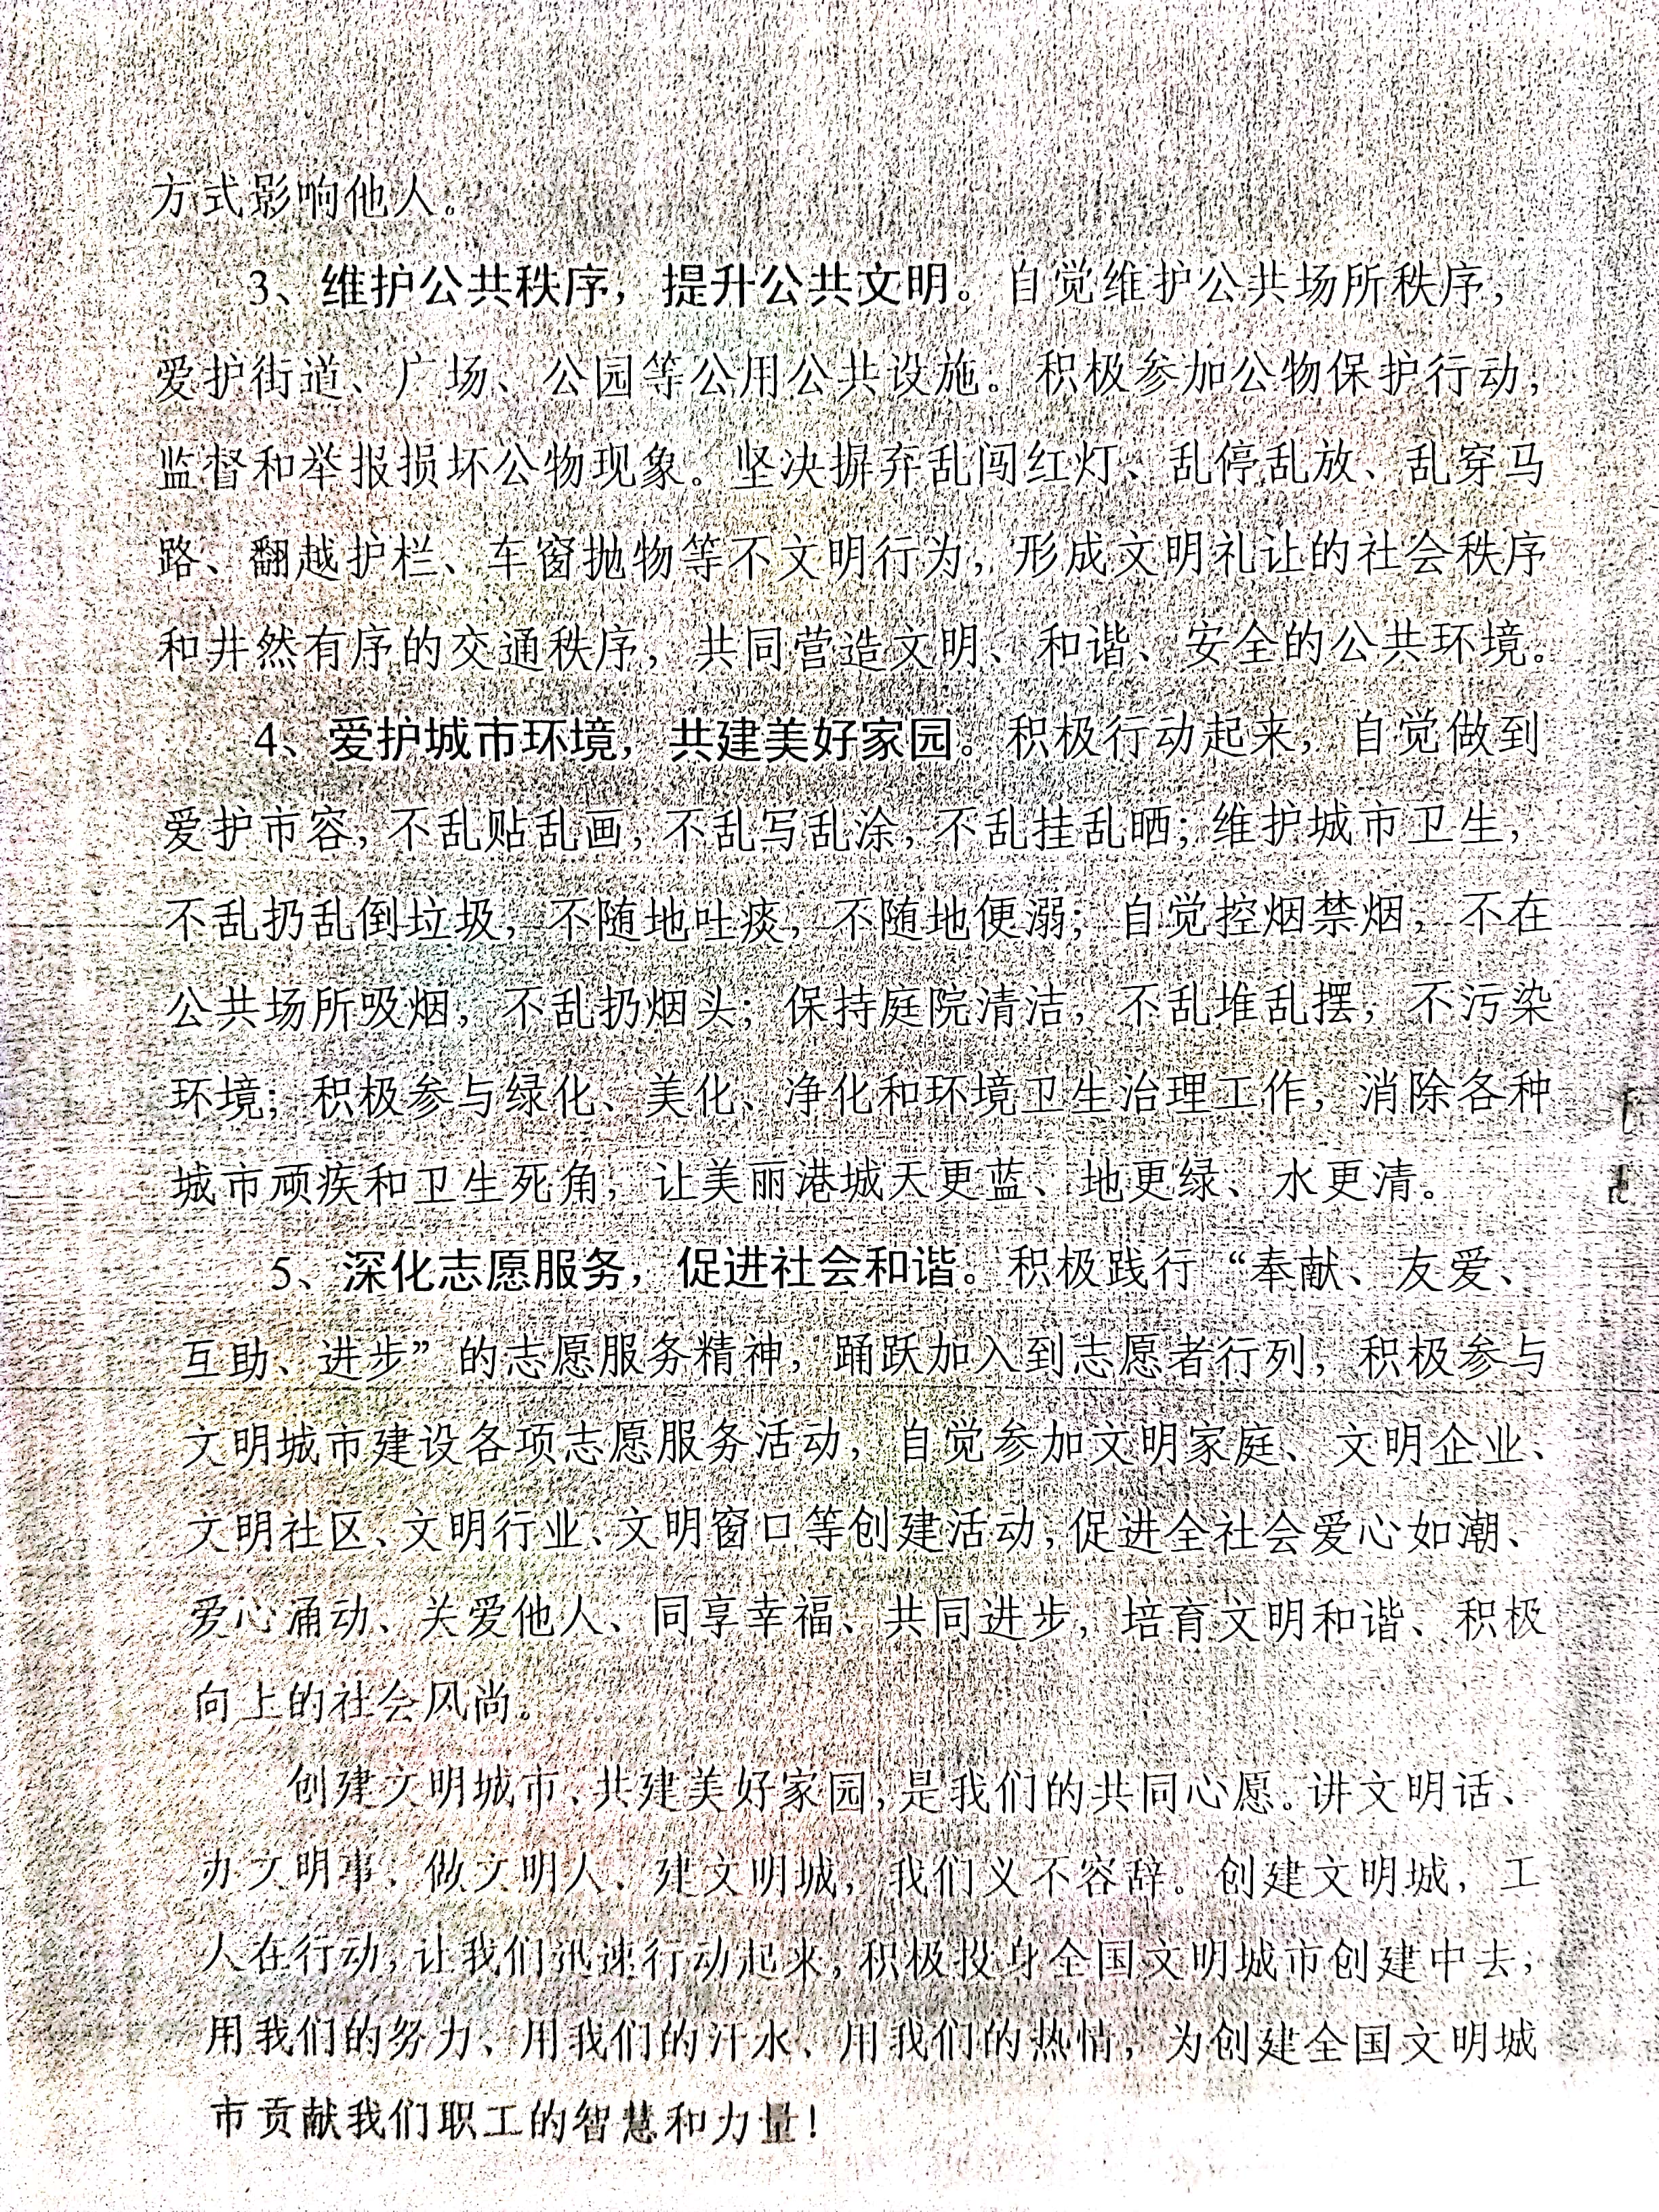 方式影响他人。
3、维护公共秩序，提升公共文明。自觉维护公共场所秩序，
爱护街道、广场、公园等公用公共设施。积极参加公物保护行动，
监督和举报损坏公物现象。坚决摒弃乱闯红灯、乱停乱放、乱穿马
路、翻越护栏、车窗抛物等不文明行为，形成文明礼让的社会秩序
和井然有序的交通秩序，共同营造文明、和谐、安全的公共环境。
4、爱护城市环境，共建美好家园。积极行动起来，自觉做到
爱护市容，不乱贴乱画，不乱写乱涂，不乱挂乱晒；维护城市卫生，
不乱扔乱倒垃圾，不随地吐痰，不随地便溺；自觉控烟禁烟，不在
公共场所吸烟，不乱扔烟头；保持庭院清洁，不乱堆乱摆，不污染
环境；积极参与绿化、美化、净化和环境卫生治理工作，消除各种
城市顽疾和卫生死角，让美丽港城天更蓝、地更绿、水更清。
5、深化志愿服务，促进社会和谐。积极践行“奉献、友爱、
互助、进步”的志愿服务精神，踊跃加入到志愿者行列，积极参与
文明城市建设各项志愿服务活动，自觉参加文明家庭、文明企业、
文明社区、文明行业、文明窗口等创建活动，促进全社会爱心如潮、
爱心涌动、关爱他人、同享幸福、共同进步，培育文明和谐、积极
向上的社会风尚。
创建文明城市、共建美好家园，是我们的共同心愿。讲文明话、
办文明事、做文明人、建文明城，我们义不容辞。创建文明城，工
人在行动，让我们迅速行动起来，积极投身全国文明城市创建中去，
用我们的努力、用我们的汗水、用我们的热情，为创建全国文明城
市贡献我们职工的智慧和力量！